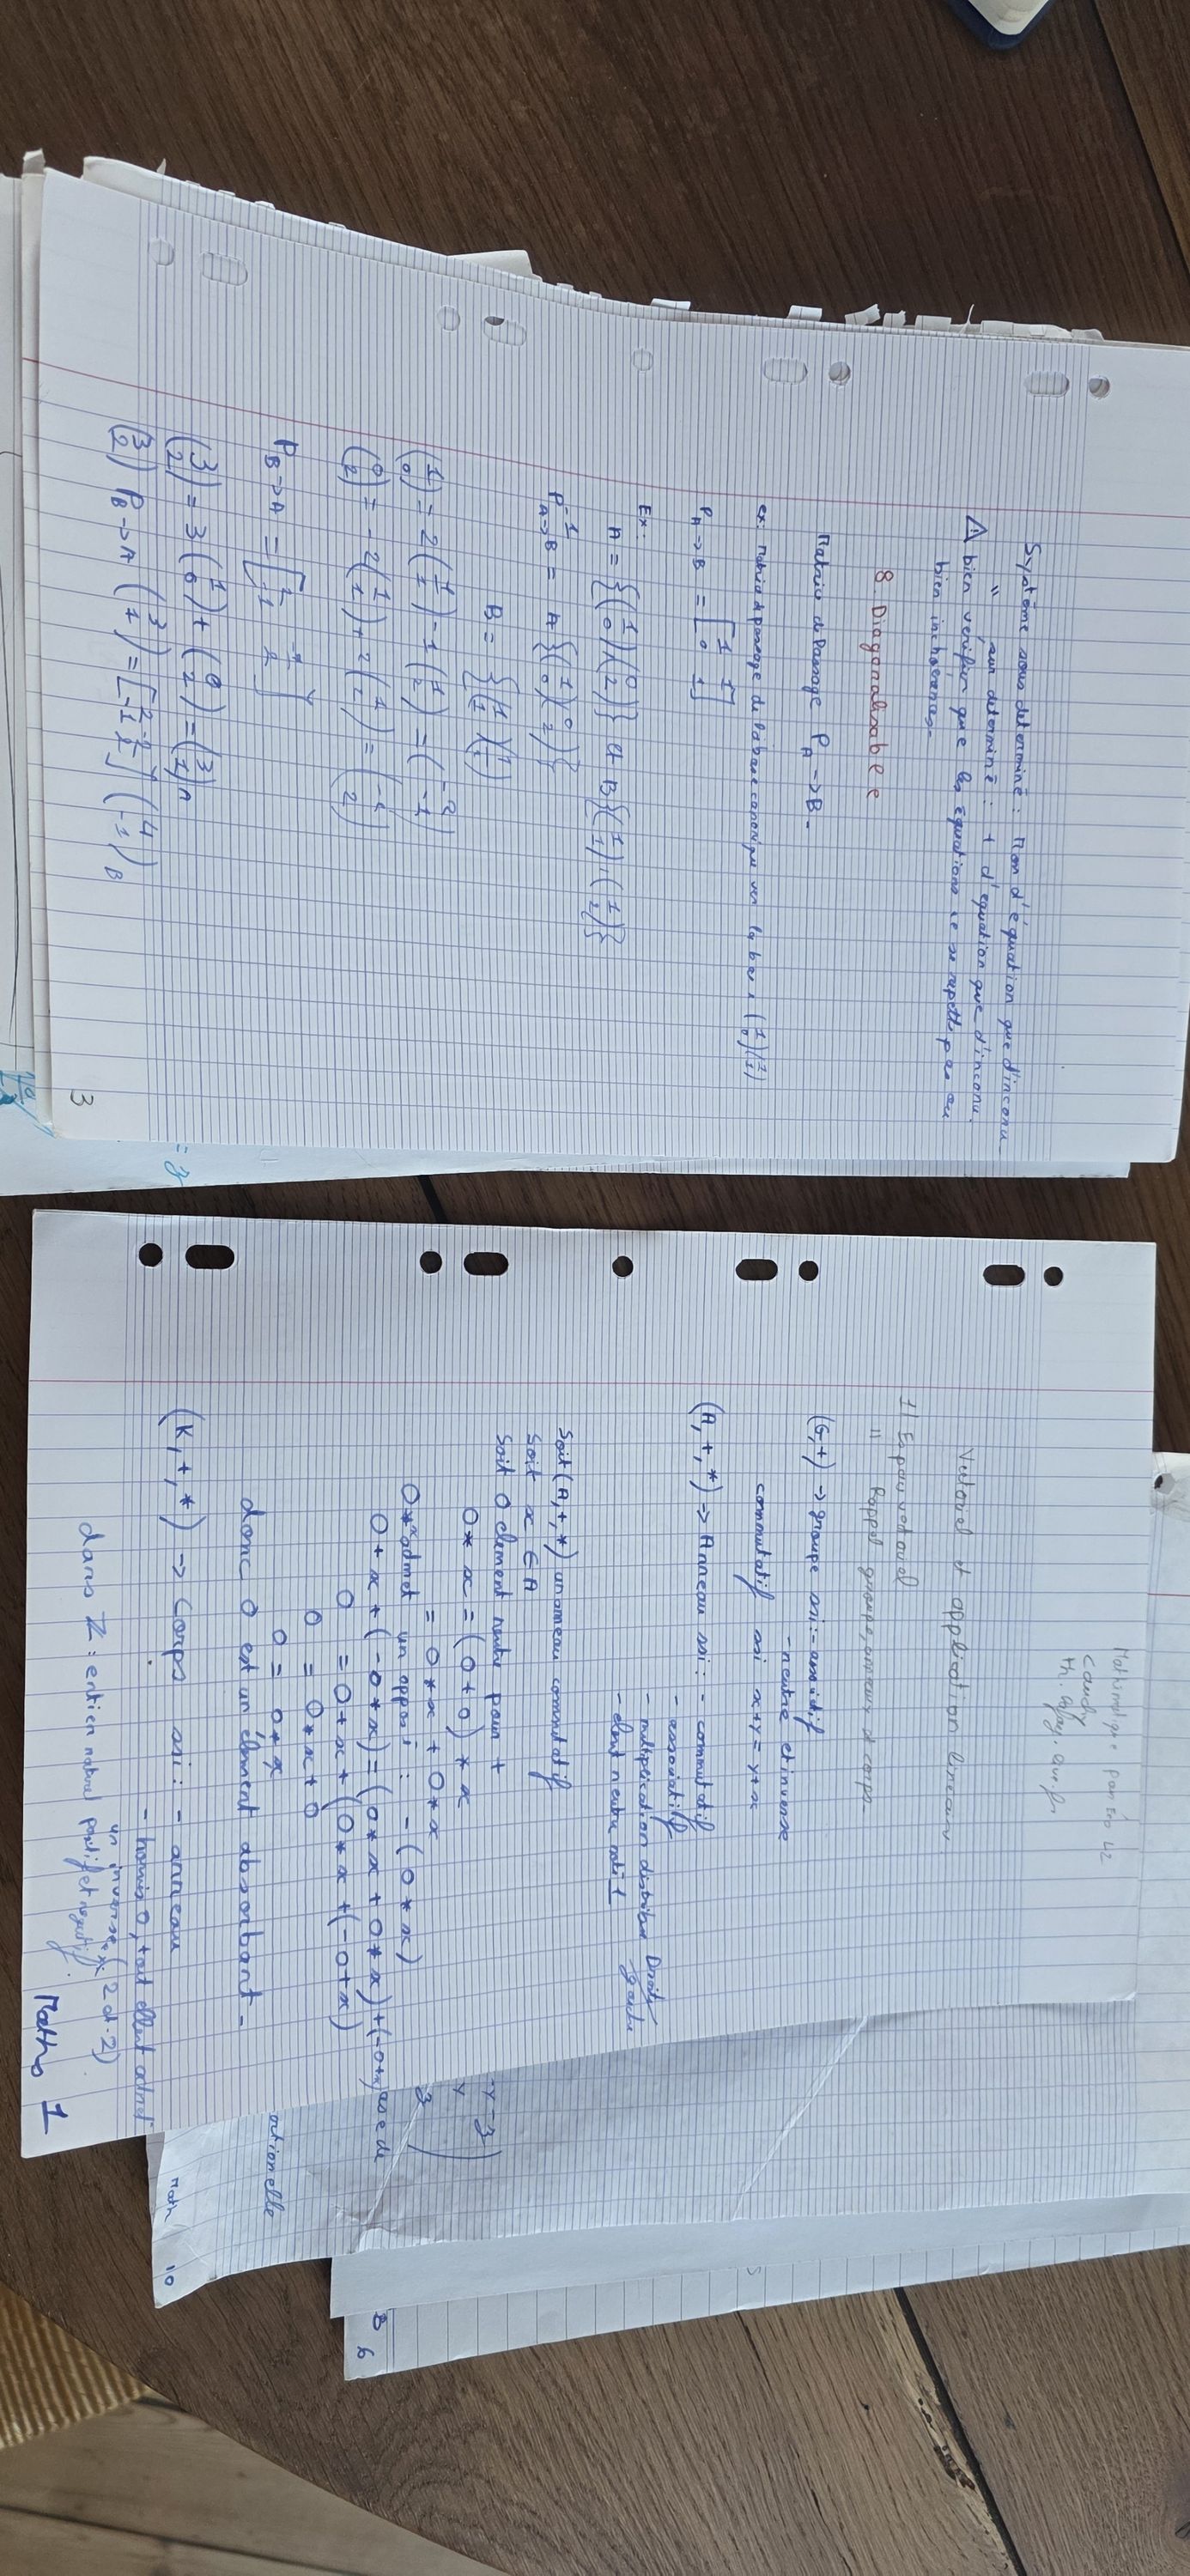 Système sous determiné : Non d'équation que d'inconu
" sur determiné : + d'équation que d'inconu.
⚠ bien verifier que les équations ne se repette pas ou
bien incohérences.
8. Diagonalisable
Matrice de Passage P A->B.
ex: Matrice de passage de la base canonique vers la base (1 0)(1 1)
P A->B = [1 1
0 1]
Ex:
A = {(1 0)(0 2)} et B{(1 1),(1 2)}
P⁻¹ A->B = A{(1 0)(0 2)}
B = {(1 1)(1 2)}
(1 0) = 2(1 1) - 1(1 2) = (2 -1)
(0 2) = -2(1 1) + 2(1 2) = (-2 2)
P B->A =
(3 2) = 3(1 0) + (0 2) = (3 1)A
(3 2) P B->A (3 1) = [2 -2
-1 2] (4 -1)B
3
= 3
Mathématique pour Eco L2
Vectoriel et application lineaire
1) Espace vectoriel
" Rappel groupe, anneau et corps.
(G,+) -> groupe ssi: - associatif
- neutre et inverse
commutatif ssi x+y = y+x
(A,+,*) -> Anneau ssi: - commutatif
- associatif
- multiplication distribue Droite
gauche
- elmt neutre noté 1
Soit (A,+,*) un anneau commutatif
Soit x ∈ A
Soit 0 element neutre pour +
0*x = (0+0)*x
= 0*x + 0*x
0*x admet un opposé : -(0*x)
0*x + (-0*x) = (0*x + 0*x) + (-0*x)
0 = 0*x + (0*x + (-0*x)
0 = 0*x + 0
0 = 0*x
donc 0 est un élément absorbant -
(K,+,*) -> Corps ssi : - anneau
- hormis 0, tout elmt admet
un inverse (ex: 2 et -2)
dans Z : entier naturel positif et negatif.
Maths 1
-y-3
y
3
ase de
ortionelle
Math 10
B 6